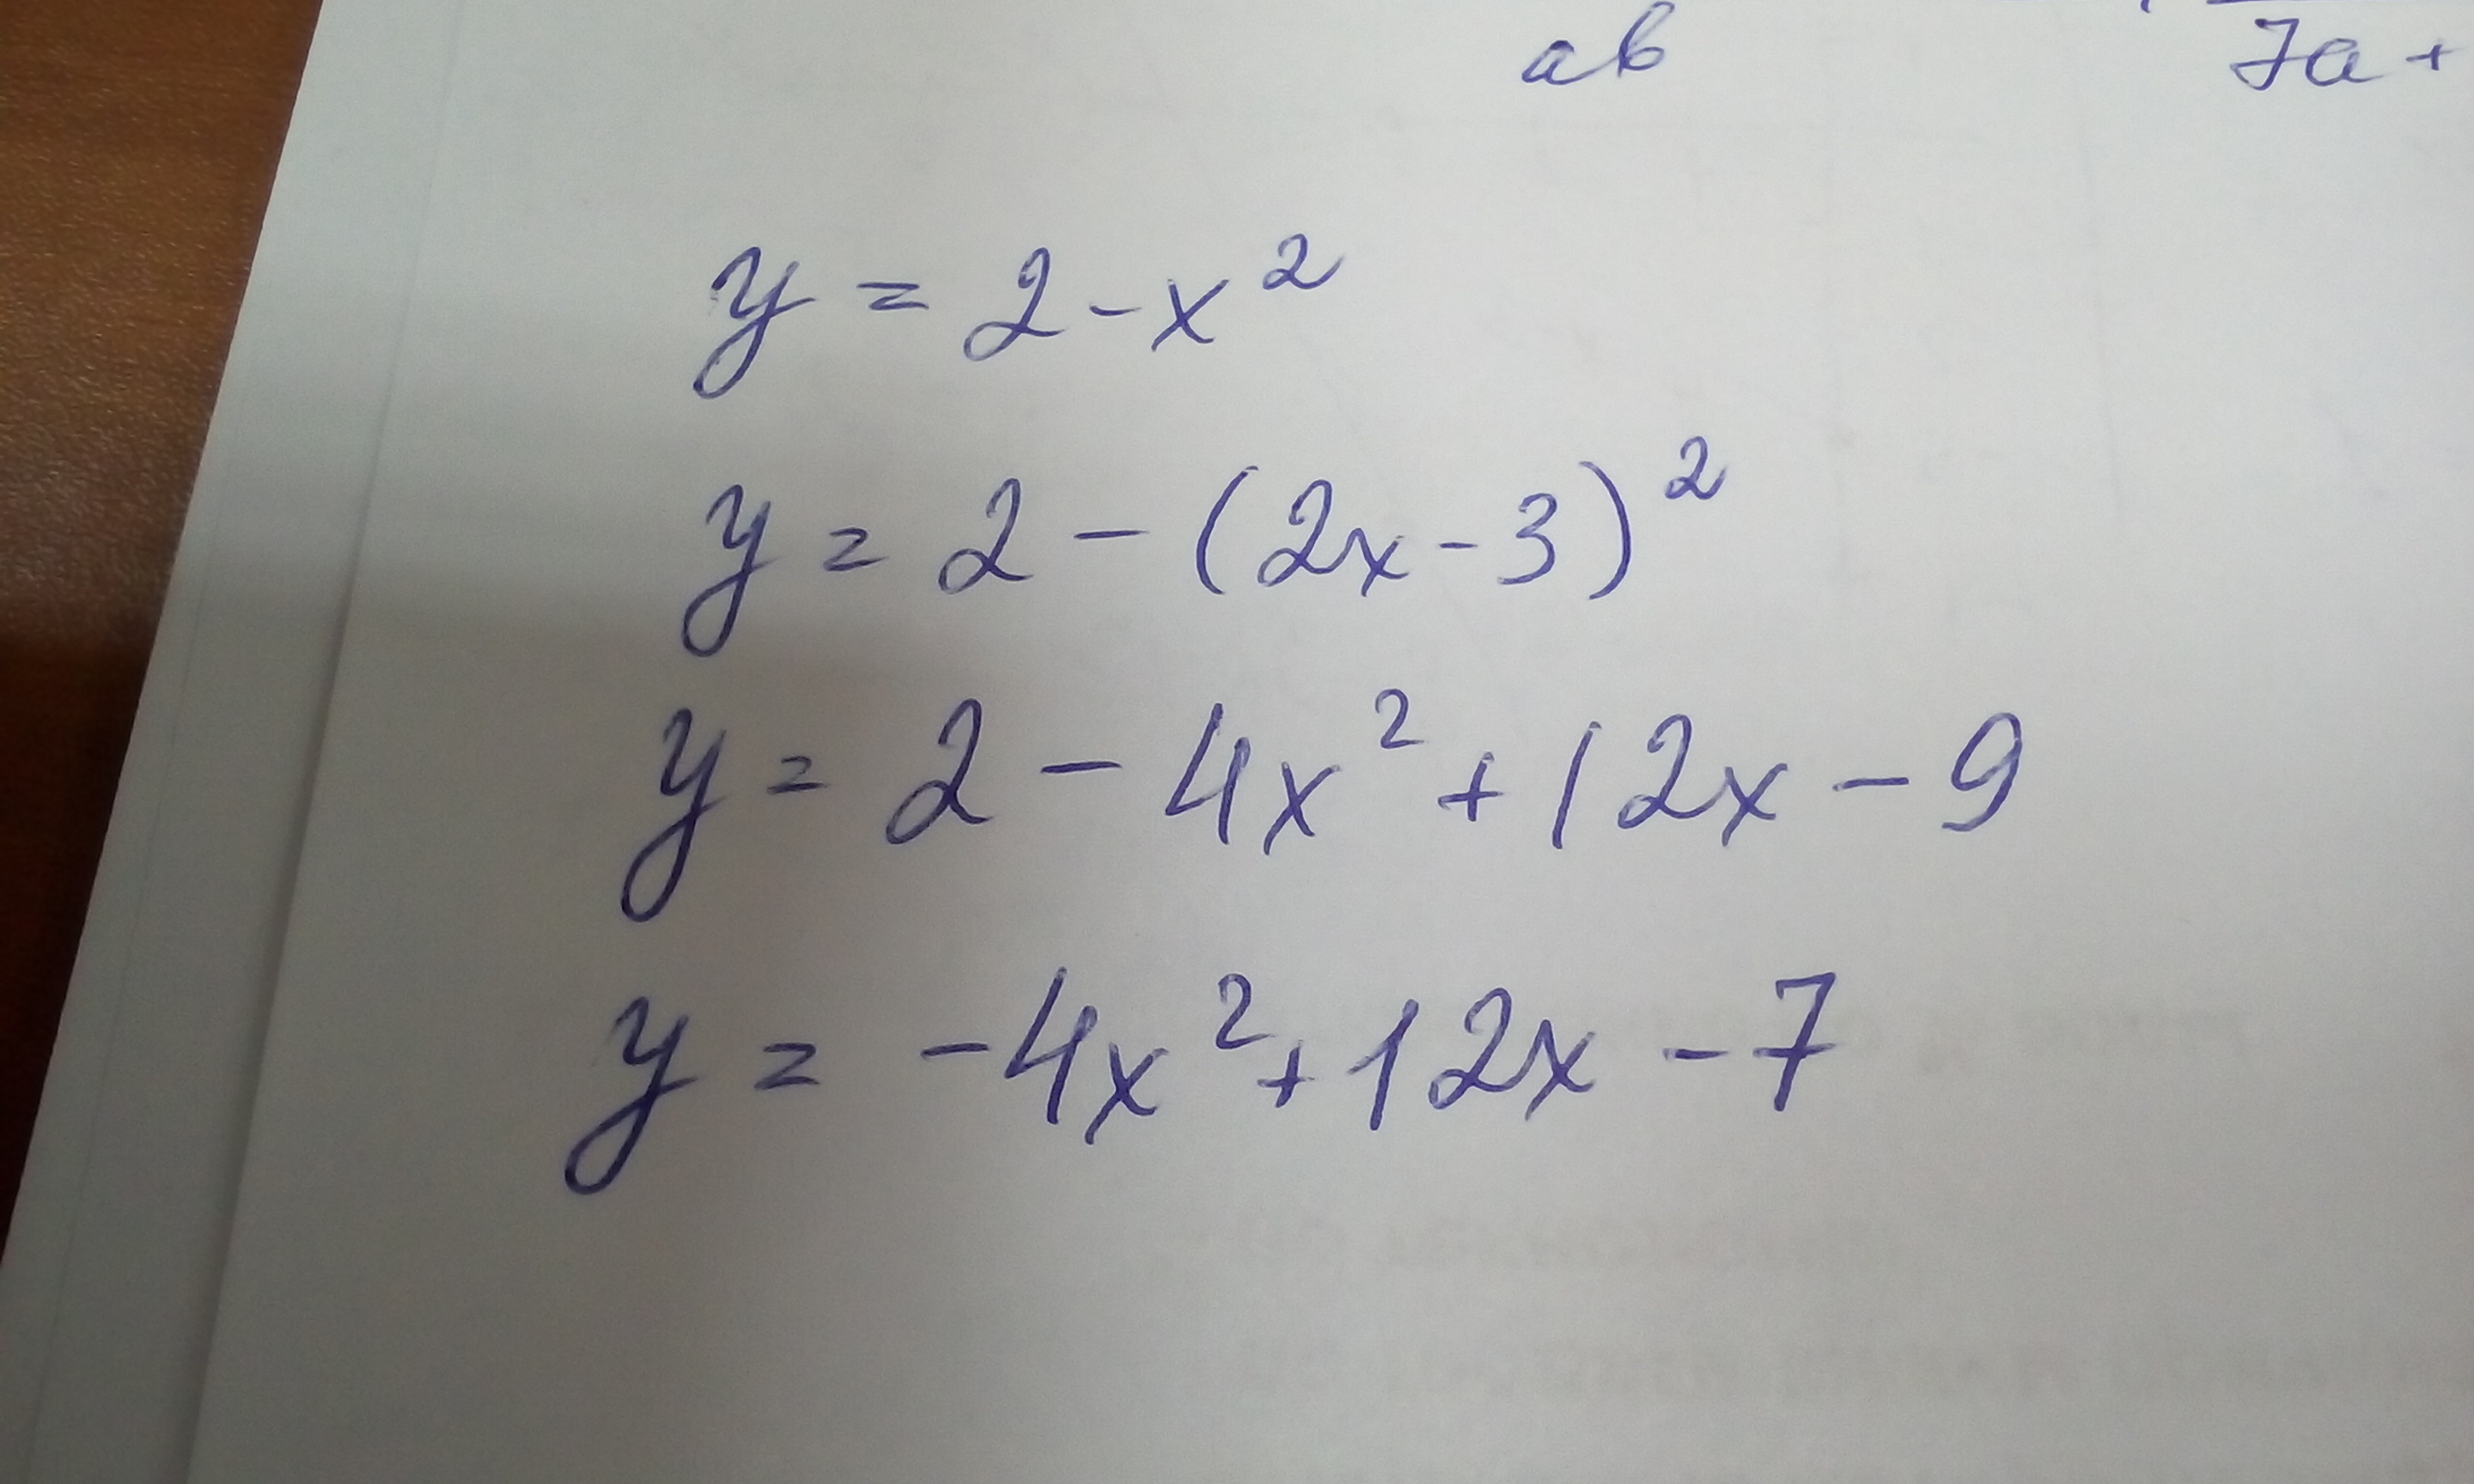 ab 7a+
y = 2 - x²
y = 2 - (2x - 3)²
y = 2 - 4x² + 12x - 9
y = -4x² + 12x - 7